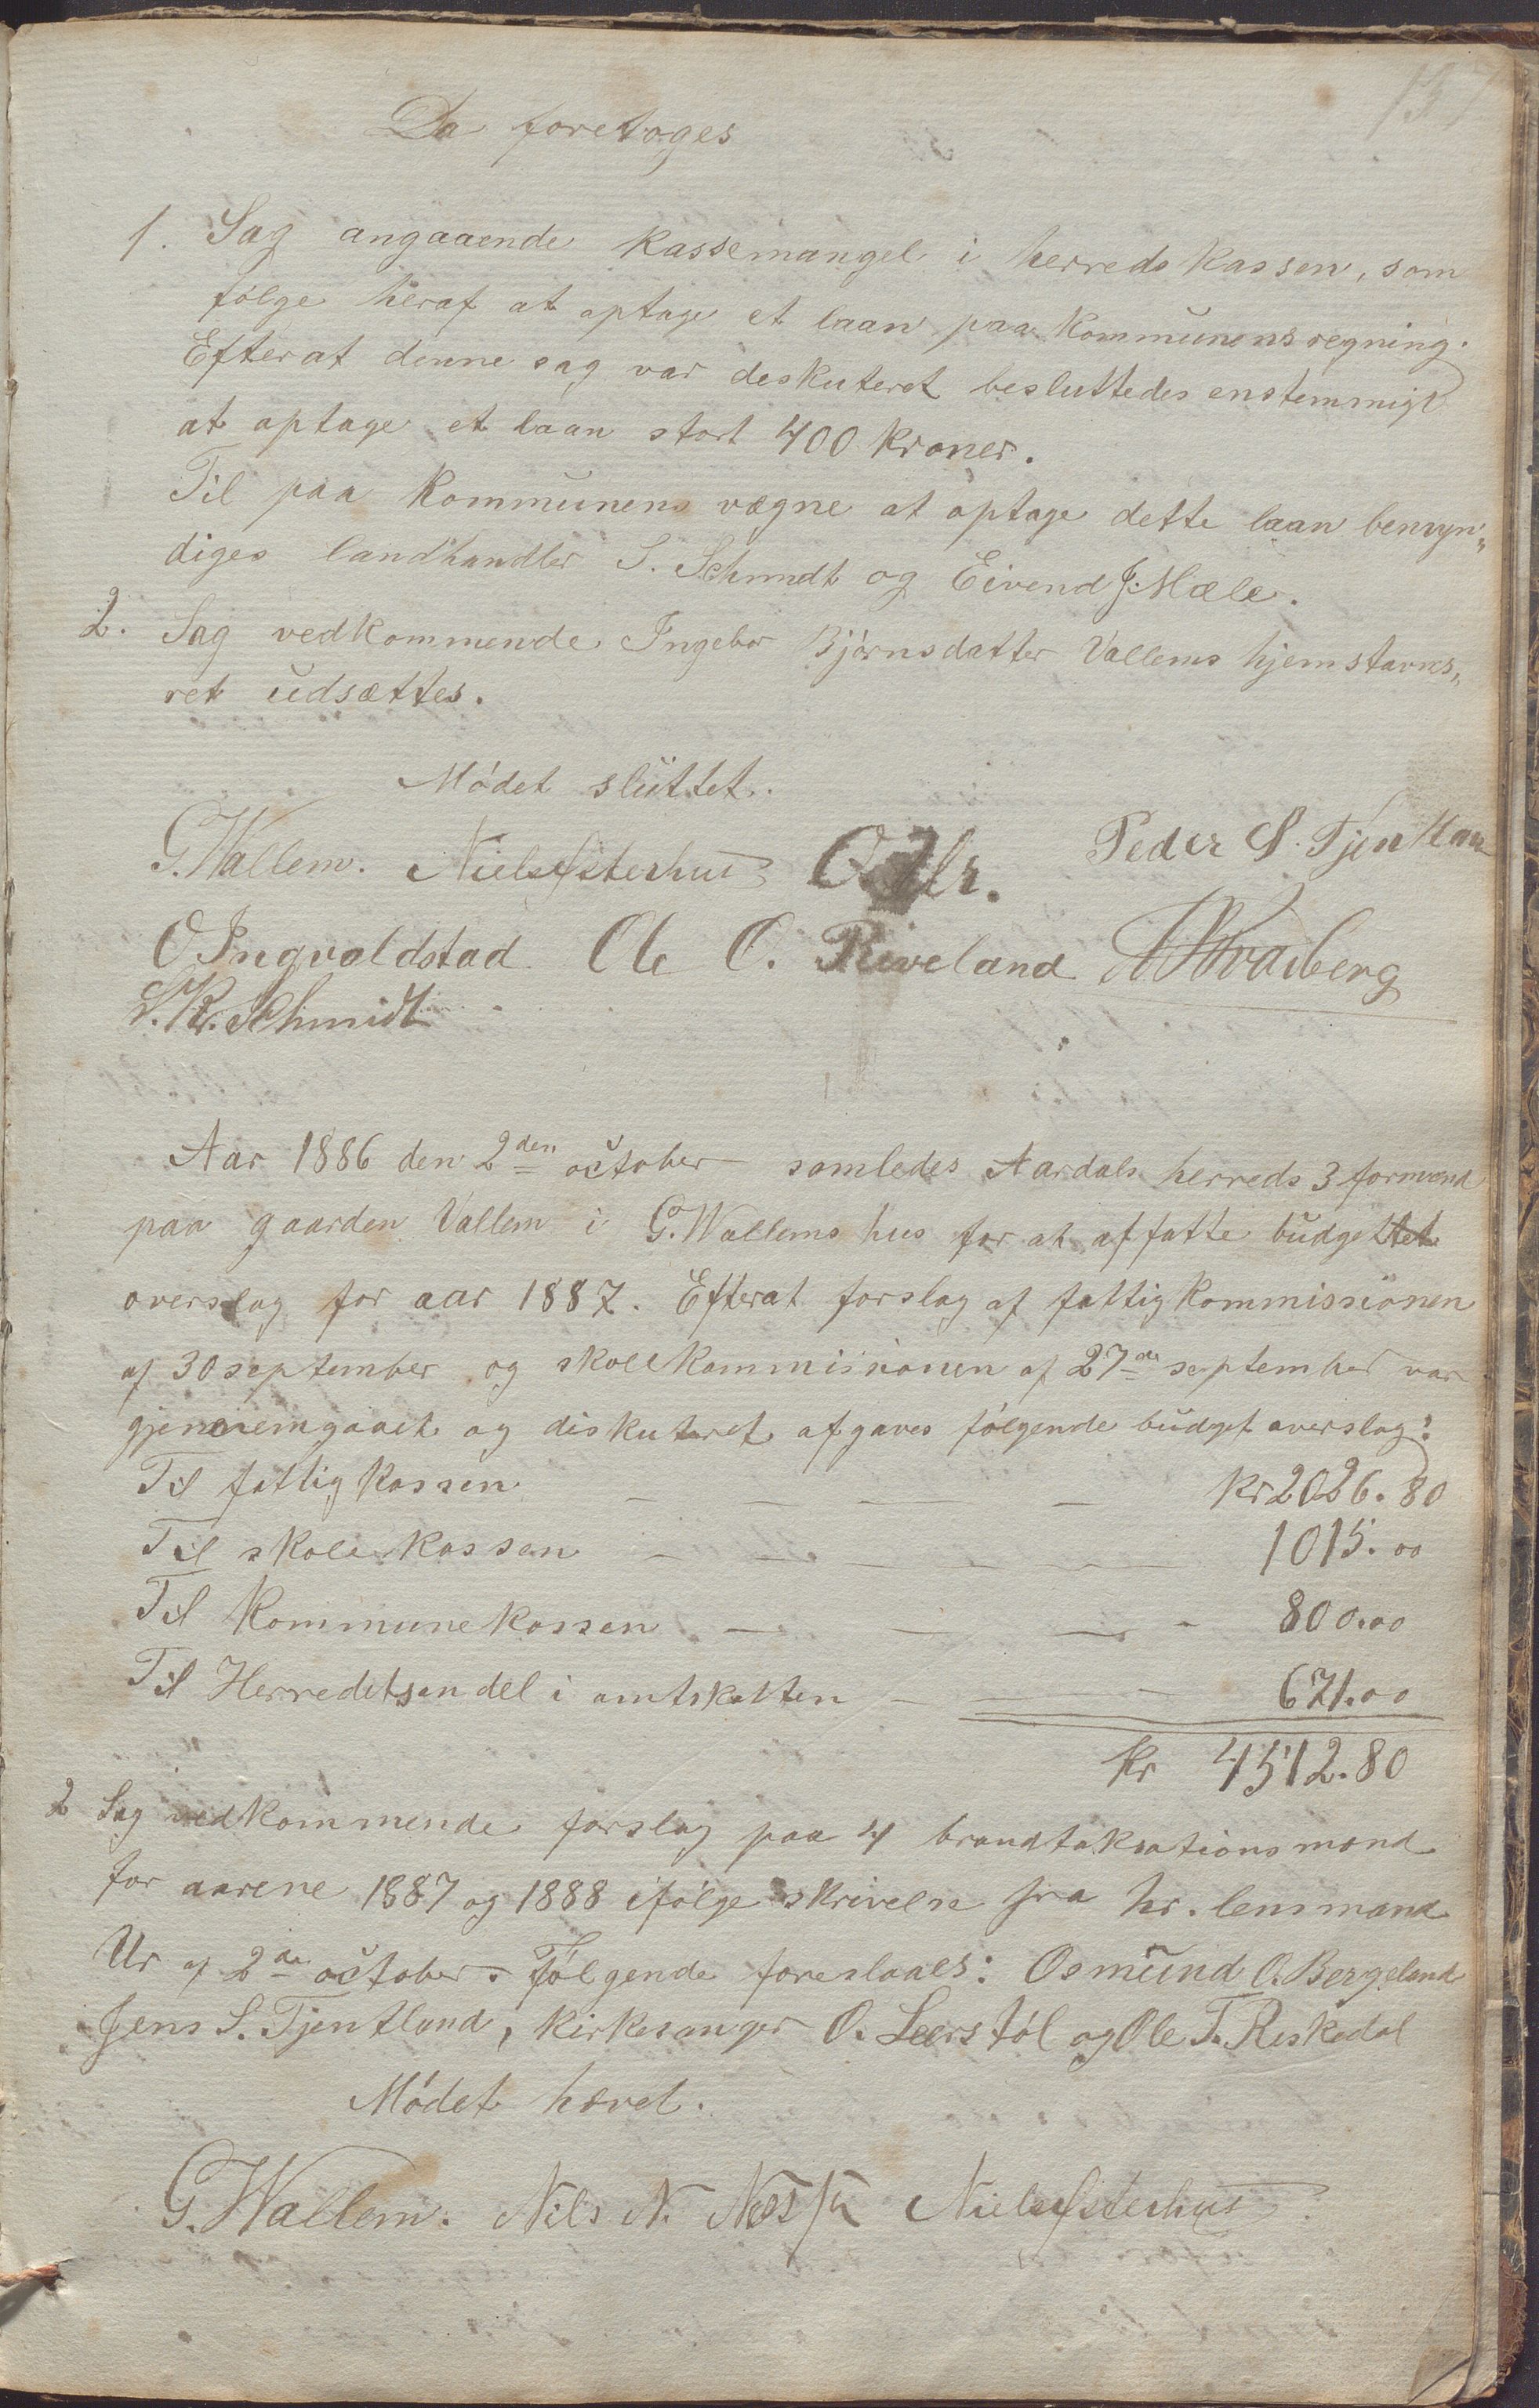 137
Da foretoges
1. Sag angaaende Kassemangel i herreds Kassen, som
følge heraf at optage et laan paa Kommunens regning.
Efterat denne sag var deskuteret besluttedes enstemmigt
at optage et laan stort 400 Kroner.
Til paa Kommunens vægne at optage dette laan bemyn„
diges landhandler S. Schmidt og Eivend J. Mæle.
2. Sag vedkommende Ingebor Bjørnsdatter Vallems hjemstavns„
ret udsættes.
Mödet sluttet.
G. Wallem. Niels Østerhus O. Ur. Peder S. Tjentland
O Ingvaldstad Ole O. Riveland
S. Kr. Schmidt
Aar 1886 den 2den october samledes Aardals herreds 3 formænd
paa gaarden Vallem i G. Wallems hus for at affatte budgettet
overslag for aar 1887. Efterat forslag af fattigkommissionen
af 30 september og skolekommissionen af 27de september var
gjennemgaaet og diskuteret afgaves følgende budget overslag:
Til fattigkassen — — — — Kr 2026.80
Til skolekassen — — — — 1015.00
Til Kommunekassen — — — - 800.00
Til Herredets andel i amtskatten — — — 671.00
Kr 4512.80
2 Sag vedkommende forslag paa 4 brandtaksationsmænd
for aarene 1887 og 1888 ifølge skrivelse fra hr. lensmand
Ur af 2de october. Følgende foreslaaes: Osmund O. Bergeland
Jens S. Tjentland, Kirkesanger O. Leerstøl og Ole T. Riskedal
Mödet hævet.
G. Wallem. Nils N. Niels Østerhus